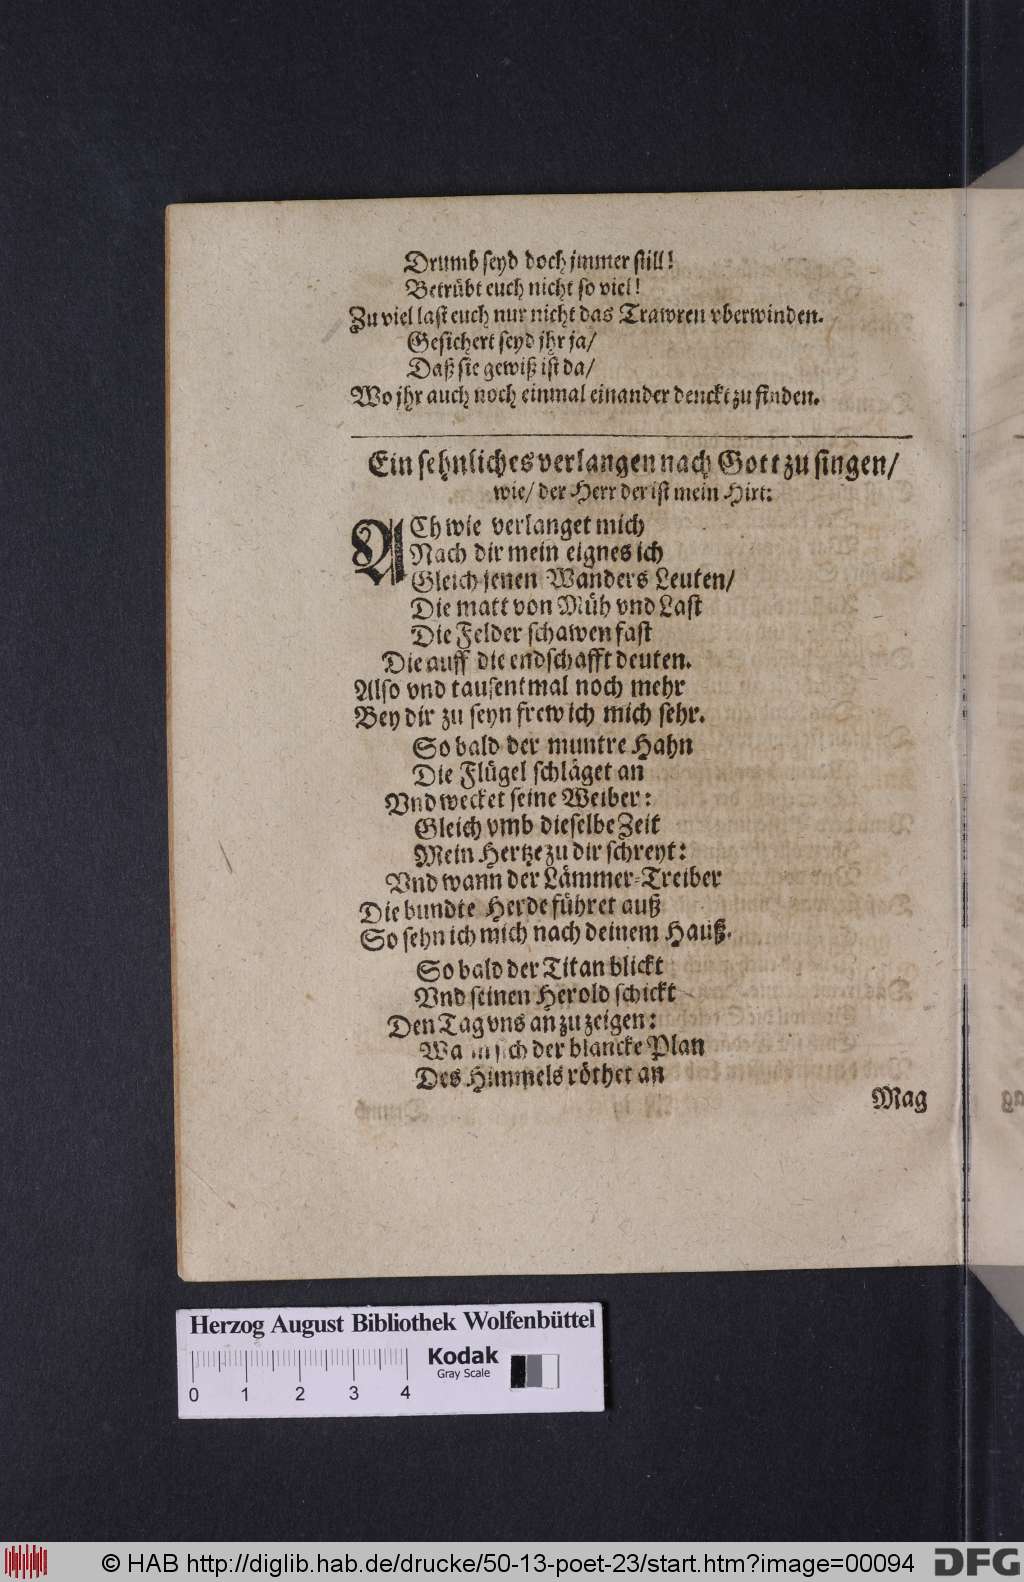 Drumb seyd doch jmmer still!
Betrübt euch nicht so viel!
Zu viel last euch nur nicht das Trawren vberwinden.
Gesichert seyd jhr ja/
Daß sie gewiß ist da/
Wo jhr auch noch einmal einander denckt zu finden.
Ein sehnliches verlangen nach Gott zu singen/
wie/ der Herr der ist mein Hirt:
ACh wie verlanget mich
Nach dir mein eignes ich
Gleich jenen Wanders Leuten/
Die matt von Müh vnd Last
Die Felder schawen fast
Die auff die endschafft deuten.
Also vnd tausent mal noch mehr
Bey dir zu seyn frew ich mich sehr.
So bald der muntre Hahn
Die Flügel schläget an
Vnd wecket seine Weiber:
Gleich vmb dieselbe Zeit
Mein Hertze zu dir schreyt:
Vnd wann der Lämmer-Treiber
Die bundte Herde führet auß
So sehn ich mich nach deinem Hauß.
So bald der Titan blickt
Vnd seinen Herold schickt
Den Tag vns an zu zeigen:
sich der blancke Plan
Des Himmels röthet an
Mag
Herzog August Bibliothek Wolfenbüttel
Kodak
Gray Scale
0 1 2 3 4
© HAB http://diglib.hab.de/drucke/50-13-poet-23/start.htm?image=00094
DFG